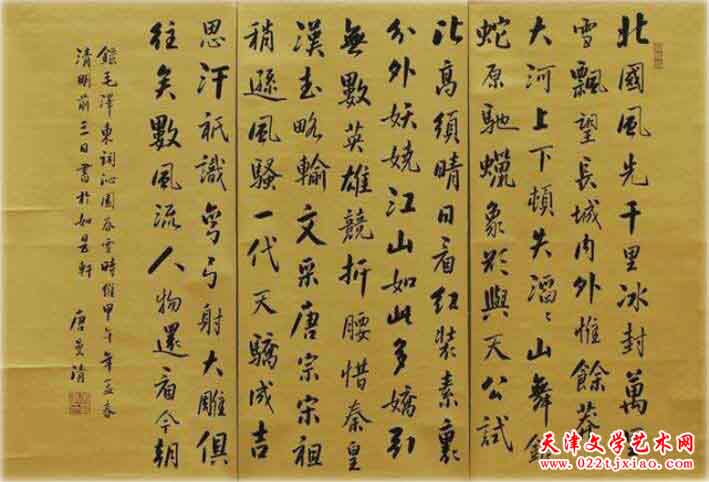 北國風光千里冰封萬里
雪飄望長城内外惟餘莽
大河上下頓失滔〻山舞銀
蛇原馳蠟象欲與天公試
比高須晴日看紅裝素裹
分外妖嬈江山如此多嬌引
無數英雄競折腰惜秦皇
漢武略輸文采唐宗宋祖
稍遜風騷一代天驕成吉
思汗祇識彎弓射大雕俱
往矣數風流人物還看今朝
錄毛澤東詞沁園春雪時維甲午年孟春
清明前三日書於如是軒
唐 清
天津文学艺术网
www.022tjxiao.com